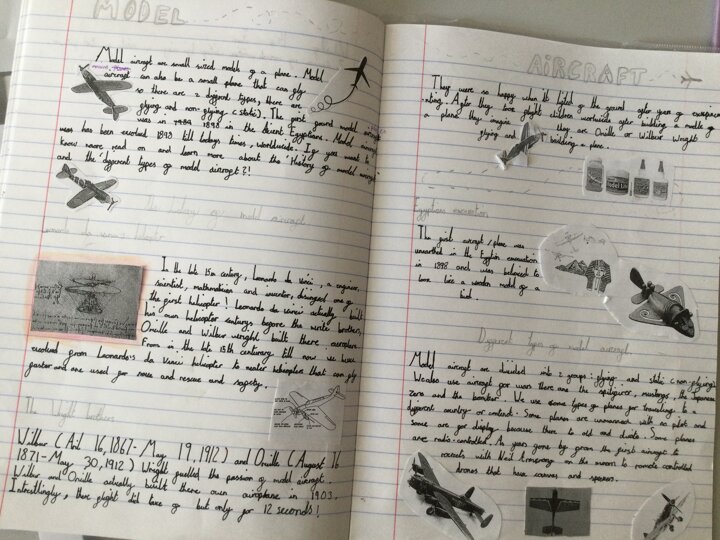 MODEL
Model aircraft are small sized models of a plane. Model
aircraft can also be a small plane that can fly
so there are 2 different types, there are
flying and non-flying (static). The first found model aircraft
was in 1898 in the decent Egyptians. Model aircraft
has been evolved 1898 till todays times, worldwide. If you want to
know more read on and learn more about the 'History of model aircraft'
and the 'different types of model aircraft'!
The history of model aircraft
Leonardo da vincis helicopter
In the late 15th century, Leonardo da Vinci, a engineer,
scientist, mathmatician and inventor, designed one of
the first helicopter! Leonardo da vinci actually built
his own helicopter centurys before the write brothers,
Orville and Wilbur wright built there aeroplane.
From in the late 15th centuary till now we have
evolved from Leonardo's da Vinci helicopter to newer helicopter that can fly
faster and are used for and rescue and safety.
The Wright brothers
Wilbur (Aril 16, 1867- May 19, 1912) and Orville (August 16
1871-May 30, 1912) Wright fuelled the passion of model aircraft.
Wilbur and Orville actually built there own aeroplane in 1903.
Interestingly, there flight did take of but only for 12 seconds!
AiRCRAFT
They were so happy when its lifted of the ground after years of experimen
-ating. After they love flight children worldwide after building a model of
a plane they imagine they are Orville or Wilbur Wright
flying and building a plane.
Egyptians excavation
The first aircraft/plane was
unearthed in the Egyptian excavation
in 1898 and was believed to
been like a wooden model of a
bird.
Different types of model aircraft.
Model aircraft are divided into 2 groups: flying and static (non flying).
We also use aircraft for war there are the spitfire, mustangs, the Japanese
zero and the bomber. We use some types of planes for travelling to a
different country or continent. Some planes are unmanned with no pilots and
some are for display because there to old and divide. Some planes
are radio-controlled. As years gone by from the first aircraft to
rockets with Neil Armstrong on the moon to remote controlled
drones that have cameras and speakers.